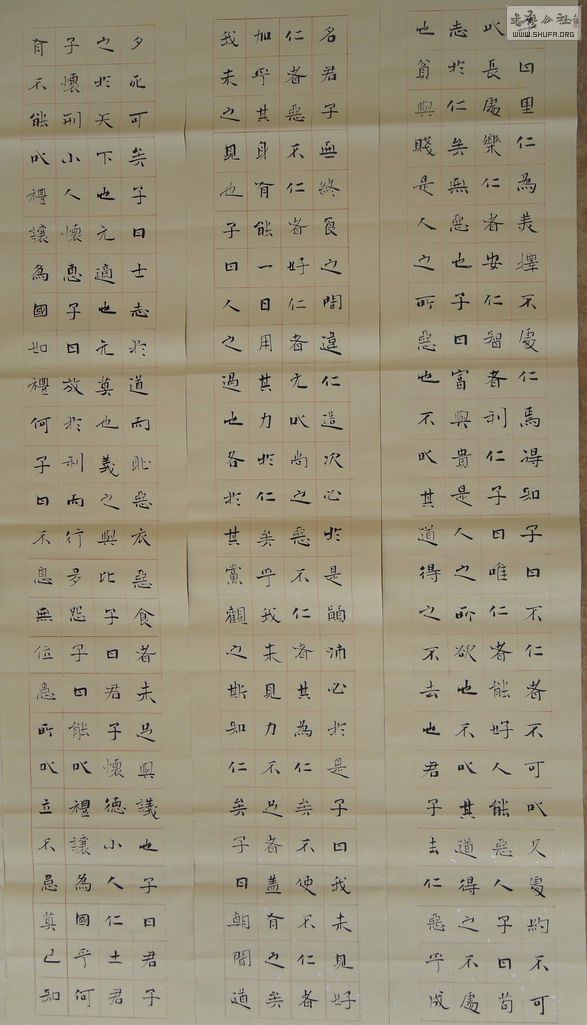 曰里仁為美擇不處仁焉得知子曰不仁者不可以久處約不可
以長處樂仁者安仁智者利仁子曰唯仁者能好人能惡人子曰苟
志於仁矣無惡也子曰富與貴是人之所欲也不以其道得之不處
也貧與賤是人之所惡也不以其道得之不去也君子去仁惡乎成
名君子無終食之間違仁造次必於是顛沛必於是子曰我未見好
仁者惡不仁者好仁者无以尚之惡不仁者其為仁矣不使不仁者
加乎其身有能一日用其力於仁矣乎我未見力不足者蓋有之矣
我未之見也子曰人之過也各於其黨觀之斯知仁矣子曰朝聞道
夕死可矣子曰士志於道而恥惡衣惡食者未足與議也子曰君子
之於天下也无適也无莫也義之與比子曰君子懷德小人仁土君
子懷刑小人懷惠子曰放於利而行多怨子曰能以禮讓為國乎何
有不能以禮讓為國如禮何子曰不患無位患所以立不患莫己知
書藝公社
WWW.SHUFA.ORG